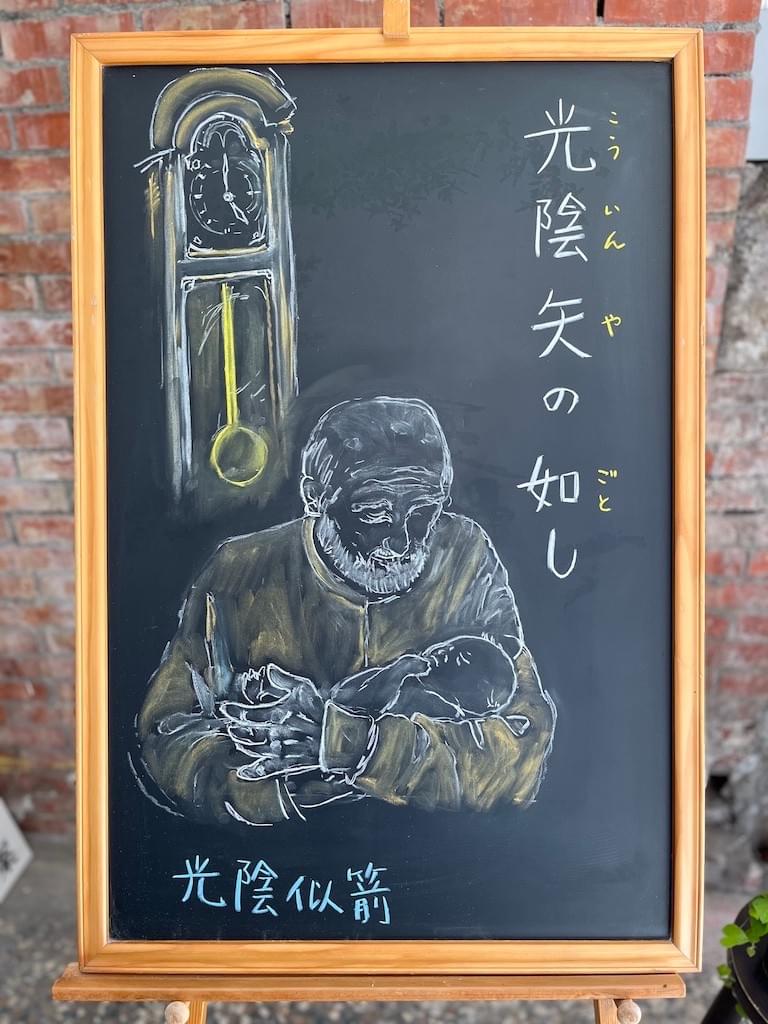 光陰矢の如し
こういんや
ごと
光陰似箭